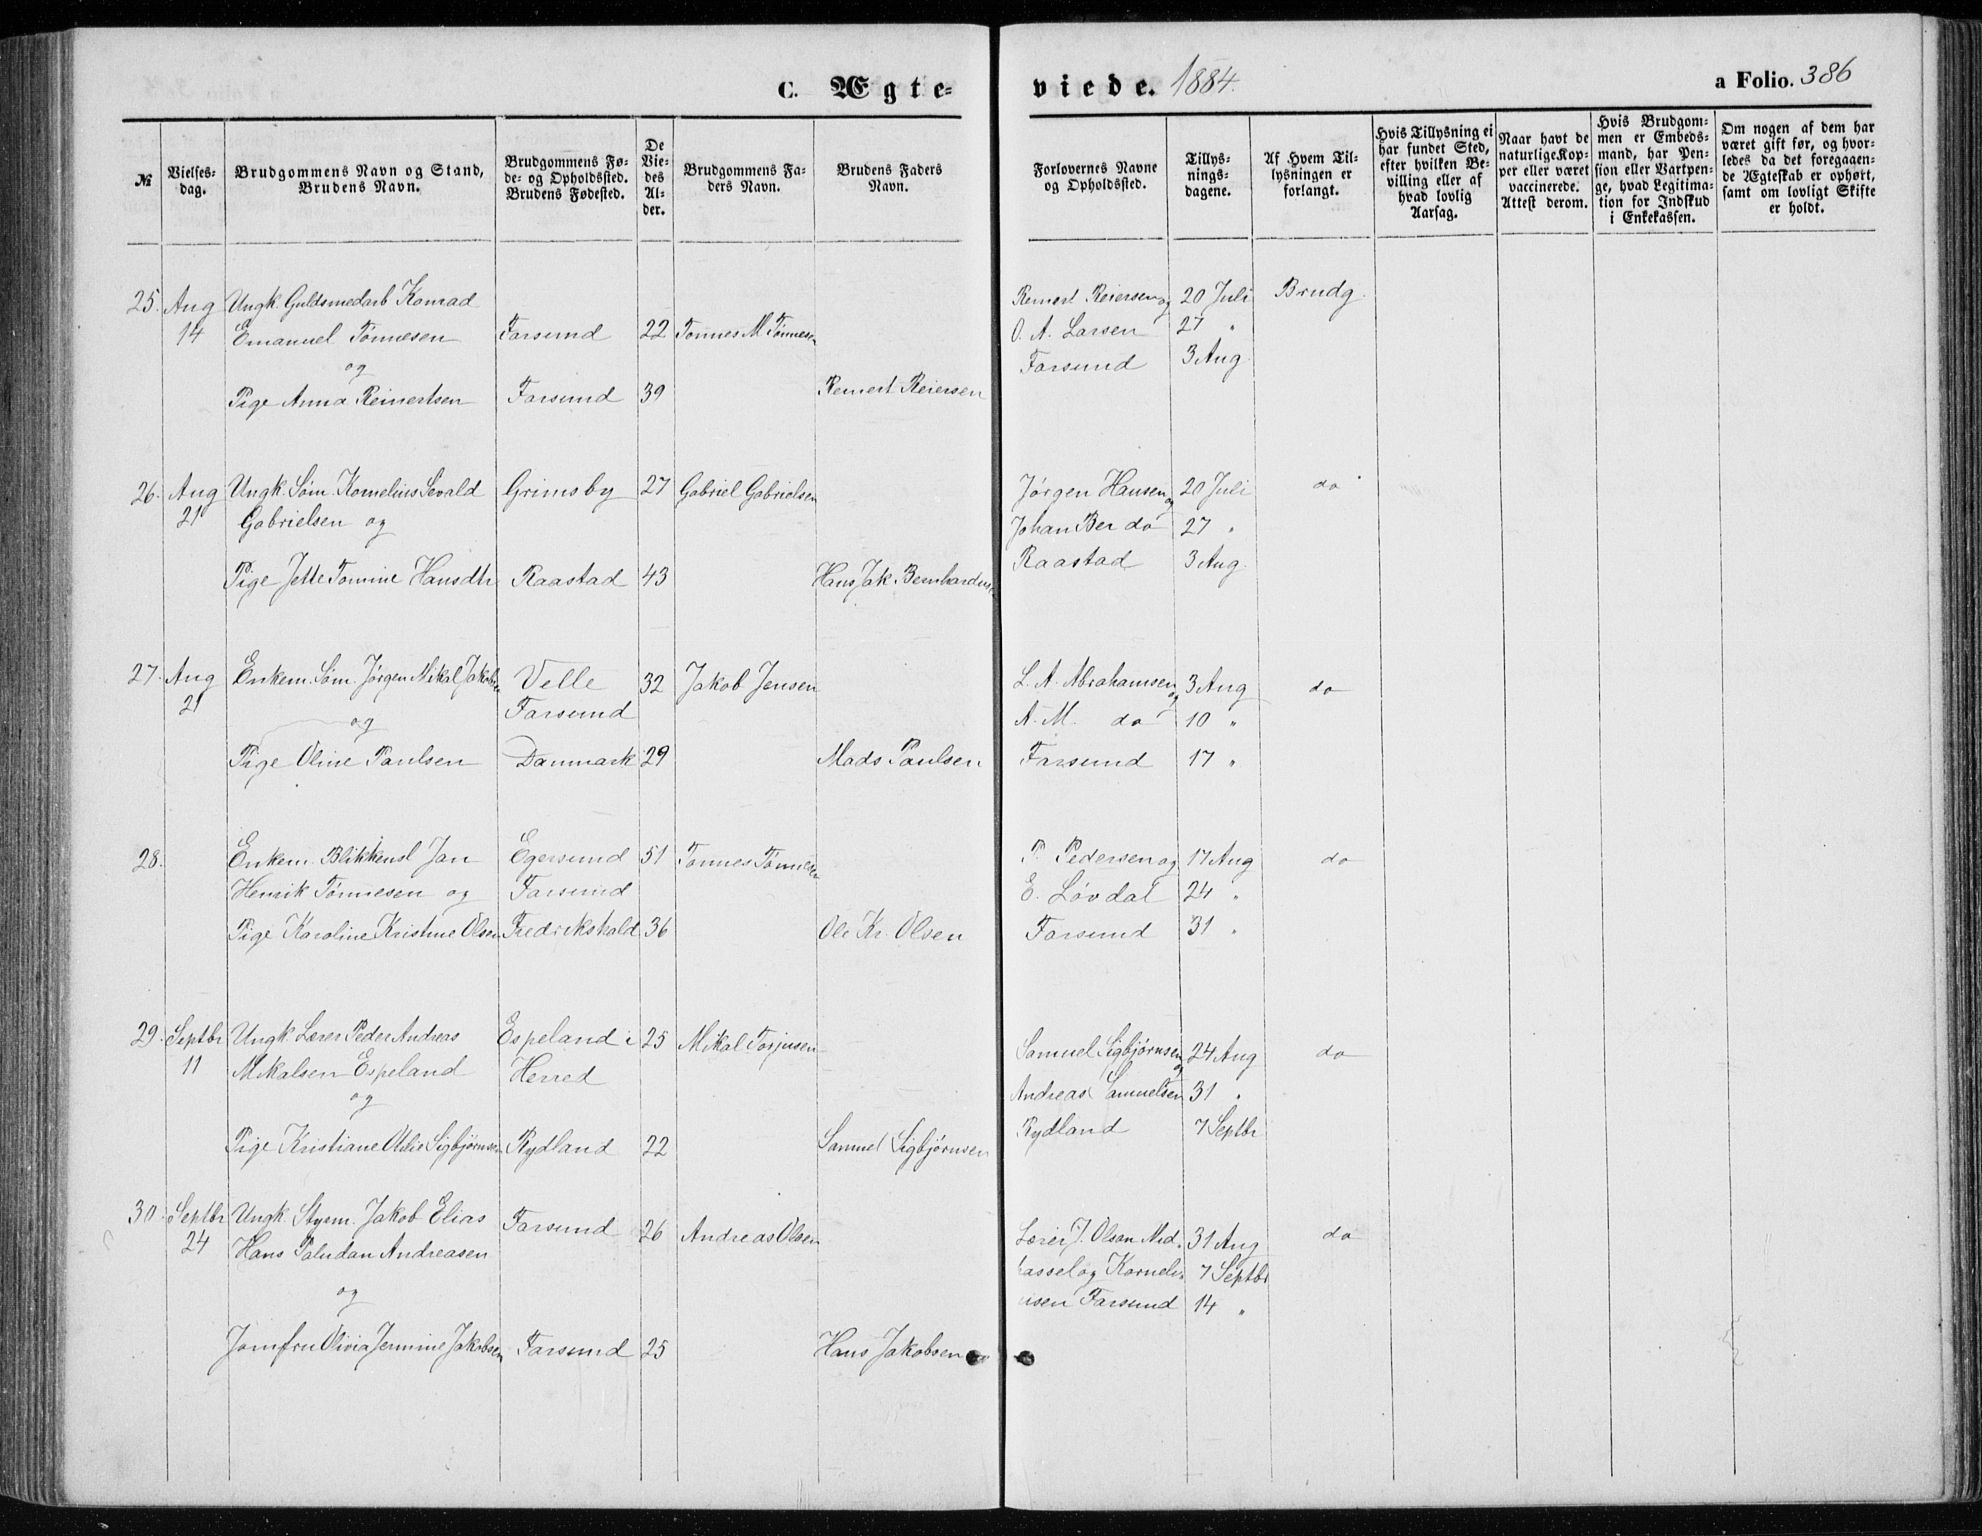 C. Ægte-
viede. 1884.
a Folio. 386
№
Vielses-
dag.
Brudgommens Navn og Stand,
Brudens Navn.
Brudgommens Fø-
de- og Opholdssted.
Brudens Fødested.
De
Vie-
des
Al-
der.
Brudgommens Fa-
ders Navn.
Brudens Faders
Navn.
Forlovernes Navne
og Opholdssted.
Tillys-
nings-
dagene.
Af Hvem Til-
lysningen er
forlangt.
Hvis Tillysning ei
har fundet Sted,
efter hvilken Be-
villing eller af
hvad lovlig
Aarsag.
Naar havt de
naturlige Kop-
per eller været
vaccinerede.
Attest derom.
Hvis Brudgom-
men er Embeds-
mand, har Pen-
sion eller Vartpen-
ge, hvad Legitima-
tion for Indskud
i Enkekassen.
Om nogen af dem har
været gift før, og hvor-
ledes da det foregaaen-
de Ægteskab er ophørt,
samt om lovligt Skifte
er holdt.
25. Aug Ungk. Guldsmedarb Konrad Reinert Reiersen og 20 Juli Brudg.
14 Emanuel Tönnesen Farsund 22 Tönnes M Tönnesen O. A. Larsen 27 "
og Farsund 3 Aug.
Pige Anna Reinertsen Farsund 39 Reinert Reiersen
26. Aug Ungk. Søm. Kornelius Sevald Grimsby 27 Gabriel Gabrielsen Jørgen Hansen og 20 Juli do
21 Gabrielsen og Johan Ber do 27 "
Pige Jette Tomine Hansdtr Raastad 43 Hans Jak. Bernhardus Raastad 3 Aug.
27. Aug Enkem. Søm. Jørgen Mikal Jakobsen Velle 32 Jakob Jensen L. A. Abrahamsen og 3 Aug do
21 og Farsund A. M. do 10 "
Pige Oline Paulsen Danmark 29 Mads Paulsen Farsund 17 "
28. Enkem. Blikkensl Jan Egersund 51 Tönnes Tönnesen P. Pedersen og 17 Aug do
Henrik Tönnesen og Farsund E. Løvdal 24 "
Pige Karoline Kristine Olsen Fredrikshald 36 Ole Kr. Olsen Farsund 31 "
29. Septbr Ungk. Lærer Peder Andreas Espeland i 25 Mikal Torjusen Samuel Sigbjørnsen og 24 Aug do
11 Mikalsen Espeland Herred Andreas Samuelsen 31 "
og Rydland 7 Septbr
Pige Kristiane Otilie Sigbjørnsen Rydland 22 Samuel Sigbjørnsen
30. Septbr Ungk. Styrm. Jakob Elias Farsund 26 Andreas Olsen Lærer J. Olsen Ned. 31 Aug do
24 Hans Paludan Andreasen hassel og Korneli 7 Septbr
og usen Farsund 14 "
Jomfru Olivia Jermine Jakobsen Farsund 25 Hans Jakobsen